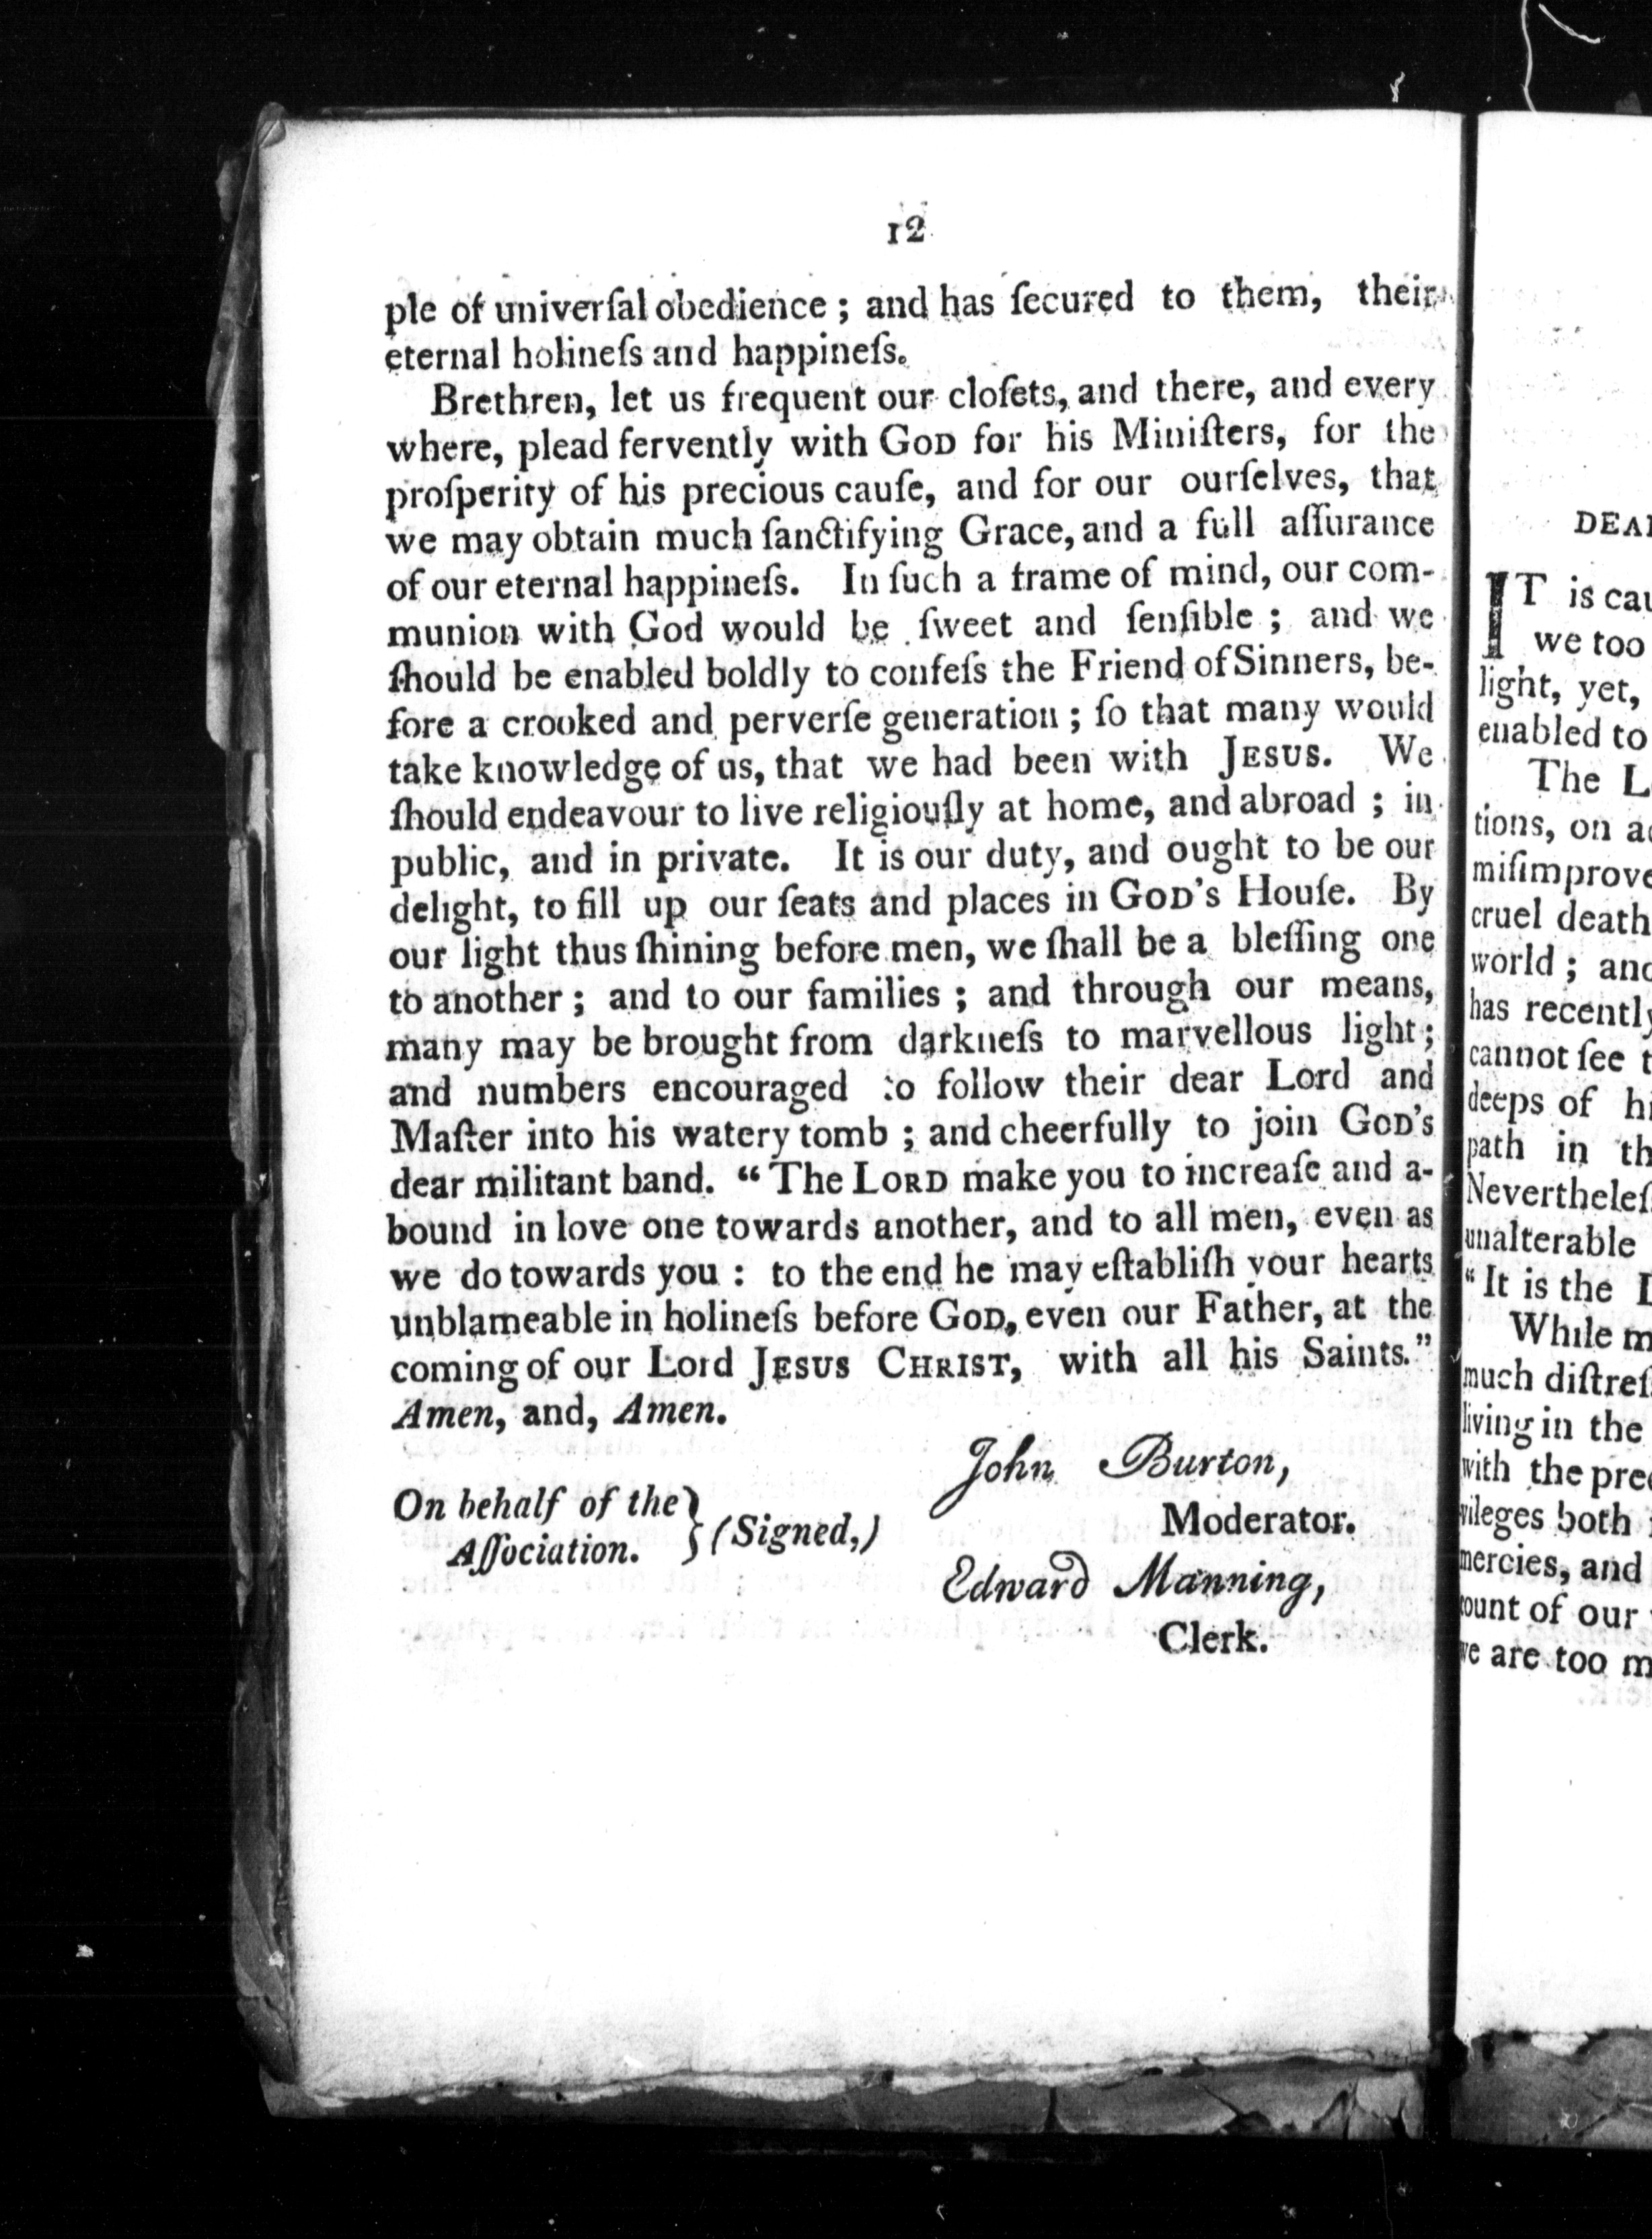 12
ple of univerſal obedience ; and has ſecured to them, their
eternal holineſs and happineſs.
Brethren, let us frequent our cloſets, and there, and every
where, plead fervently with GOD for his Miniſters, for the
proſperity of his precious cauſe, and for our ourſelves, that
we may obtain much ſanctifying Grace, and a full aſſurance
of our eternal happineſs. In ſuch a frame of mind, our com-
munion with God would be ſweet and ſenſible ; and we
ſhould be enabled boldly to confeſs the Friend of Sinners, be-
fore a crooked and perverſe generation ; ſo that many would
take knowledge of us, that we had been with JESUS. We
ſhould endeavour to live religiouſly at home, and abroad ; in
public, and in private. It is our duty, and ought to be our
delight, to fill up our ſeats and places in GOD'S Houſe. By
our light thus ſhining before men, we ſhall be a bleſſing one
to another ; and to our families ; and through our means,
many may be brought from darkneſs to marvellous light ;
and numbers encouraged to follow their dear Lord and
Maſter into his watery tomb ; and cheerfully to join GOD'S
dear militant band. “ The LORD make you to increaſe and a-
bound in love one towards another, and to all men, even as
we do towards you : to the end he may eſtabliſh your hearts
unblameable in holineſs before GOD, even our Father, at the
coming of our Lord JESUS CHRIST, with all his Saints.”
Amen, and, Amen.
John Burton,
Moderator.
On behalf of the
Aſſociation. } (Signed,)
Edward Manning,
Clerk.
DEA
IT is cau
we too
light, yet,
enabled to
The L
tions, on a
miſimprove
cruel death
world ; and
has recently
cannot ſee t
deeps of hi
path in th
Nevertheleſ
unalterable
“ It is the
While m
much diſtreſ
living in the
with the pre
vileges both
mercies, and
count of our
we are too m